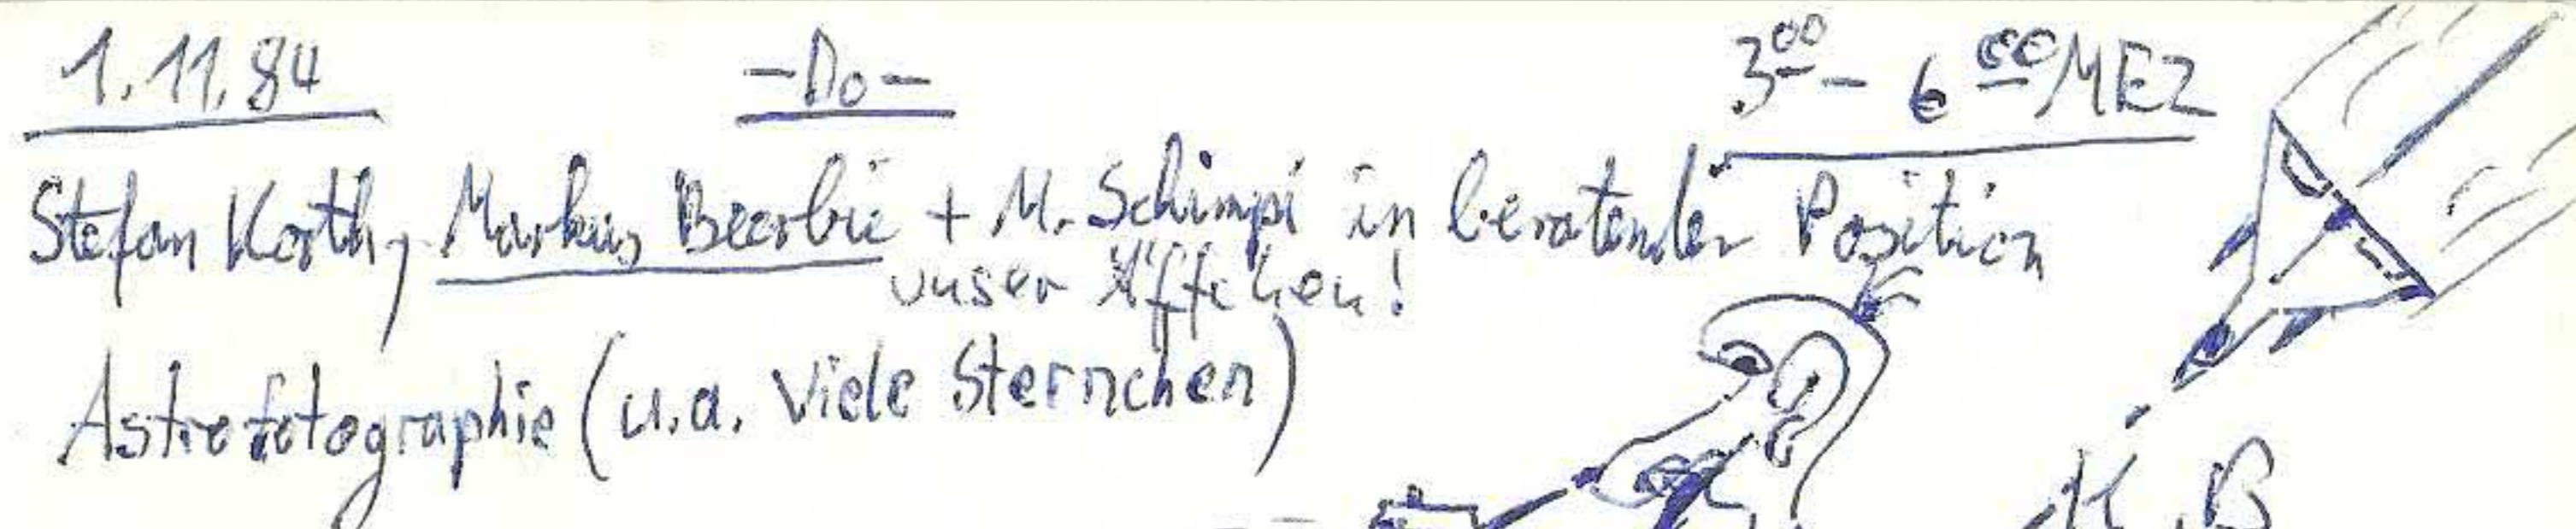 1.11.84 -Do- 3⁰⁰ - 6⁰⁰ MEZ
Stefan Korth, Markus Beerbic + M. Schimpi in beratender Position
unser Äffchen!
Astrofotographie (u.a. Viele Sternchen)
K. B